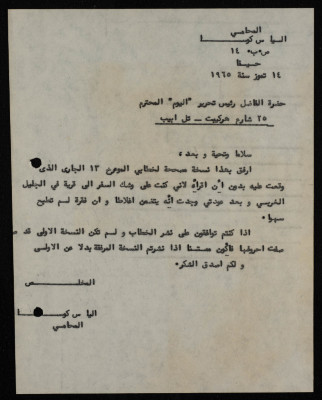 المحامي
الياس كوسا
ص٠ب٠ ١٤
حيفا
١٤ تموز سنة ١٩٦٥
حضرة الفاضل رئيس تحرير "اليوم" المحترم
٢٥ شارع هركيبت ــ تل ابيب
سلاما وتحية و بعد ،
ارفق بهذا نسخة مصححة لخطابي المؤرخ ١٣ الجارى الذى
وقعت عليه بدون أن اقرأه لاني كنت على وشك السفر الى قرية في الجليل
الغربي و بعد عودتي وجدت انه يتضمن اغلاطا و ان فقرة لم تطبع
سهوا٠
اذا كنتم توافقون على نشر الخطاب و لم تكن النسخة الاولى قد
صفت احرفها فأكون ممتنا اذا نشرتم النسخة المرفقة بدلا عن الاولى
و لكم اصدق الشكر٠
المخلص
الياس كوسا
المحامي